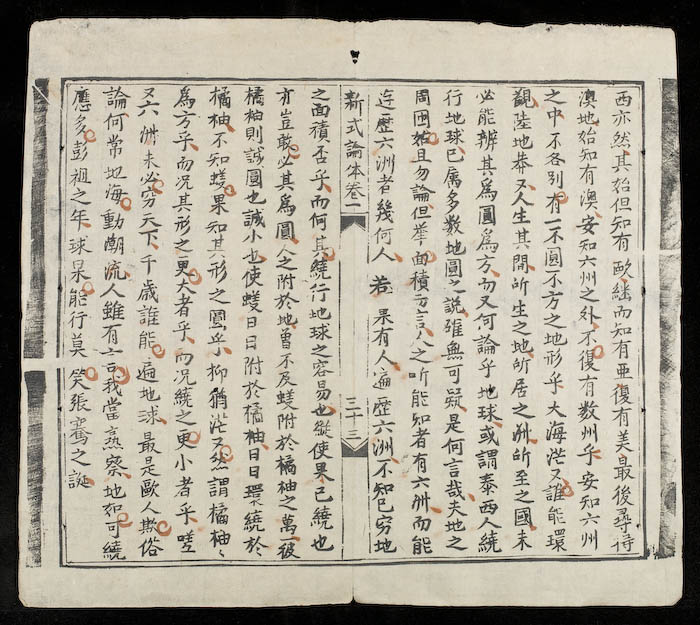 西亦然其始但知有歐継而知有亜復有美最後尋得
澳地始知有澳安知六州之外不復有数州乎安知六州
之中不各別有一不圓不方之地形乎大海茫又誰能環
觀陸地莽又人生其間所生之地所居之洲所至之國未
必能辨其為圓為方而又何論乎地球或謂泰西人繞
行地球已屬多数地圓之說雖無可疑是何言哉夫地之
周囲姑且勿論但舉面積而言人之所能知者有六洲而能
遊歷六洲者幾何人若果有人遍歷六洲不知已窮地
新式論体卷一
三十三
之面積否乎而何其繞行地球之容易也縱使果已繞也
亦豈敢必其為圓人之附於地曾不及蟻附於橘柚之萬一彼
橘柚則誠圓也誠小也使蟻日日附於橘柚日日環繞於
橘柚不知蟻果知其形之圓乎抑猶茫又然謂橘柚之
為方乎而況其形之更大者乎而況繞之更小者乎嗟
又六洲未必窮天下千歲誰能遍地球最是歐人欺俗
論何常地海動潮流人雖有言我當熹察地如可繞
應多彭祖之年球果能行莫笑張騫之誕